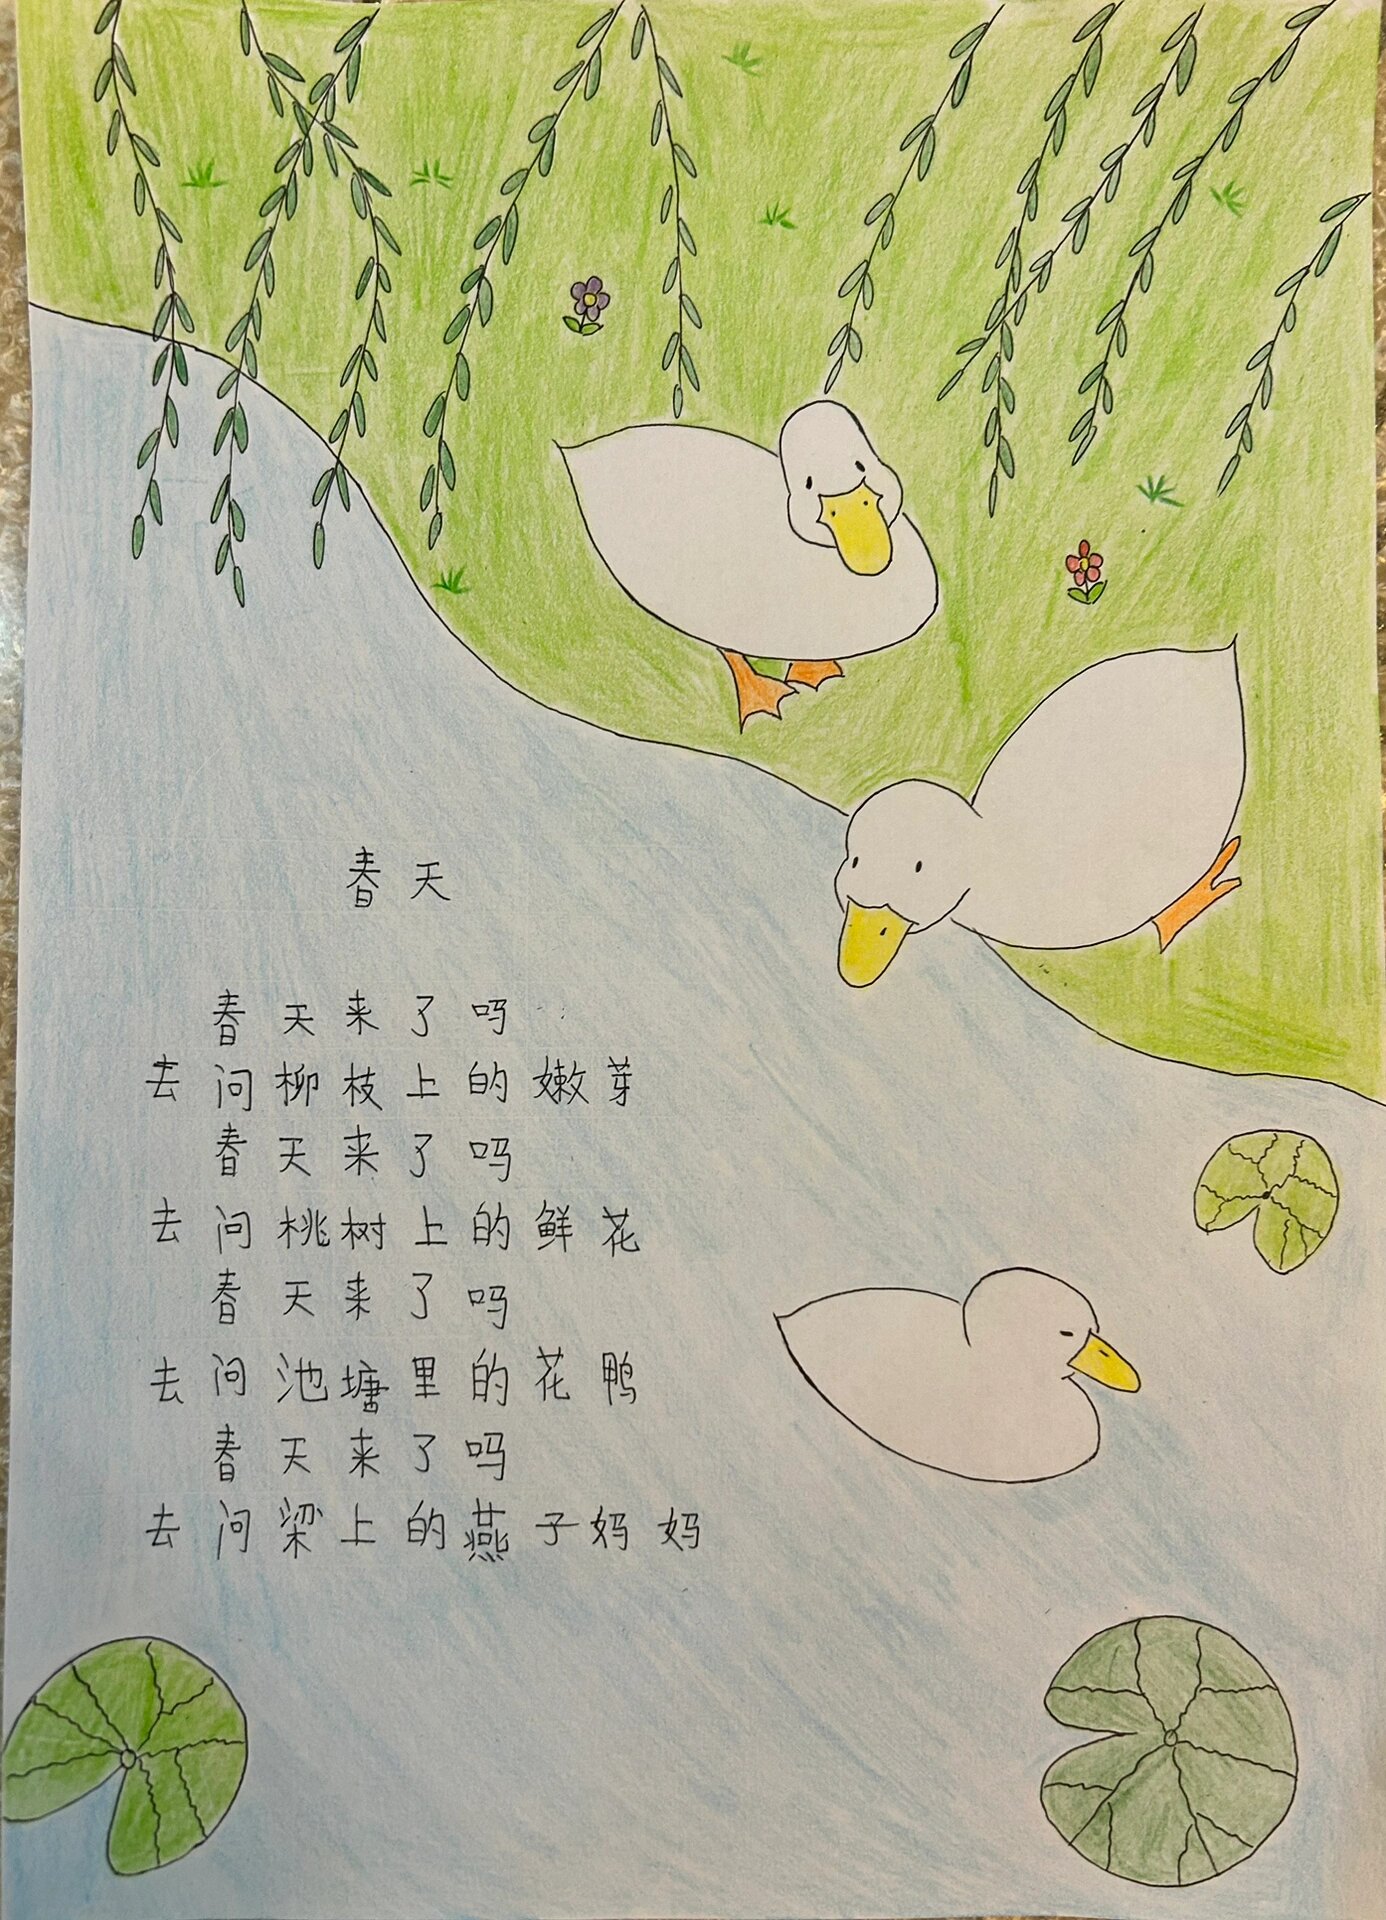 春天
春天来了吗
去问柳枝上的嫩芽
春天来了吗
去问桃树上的鲜花
春天来了吗
去问池塘里的花鸭
春天来了吗
去问梁上的燕子妈妈